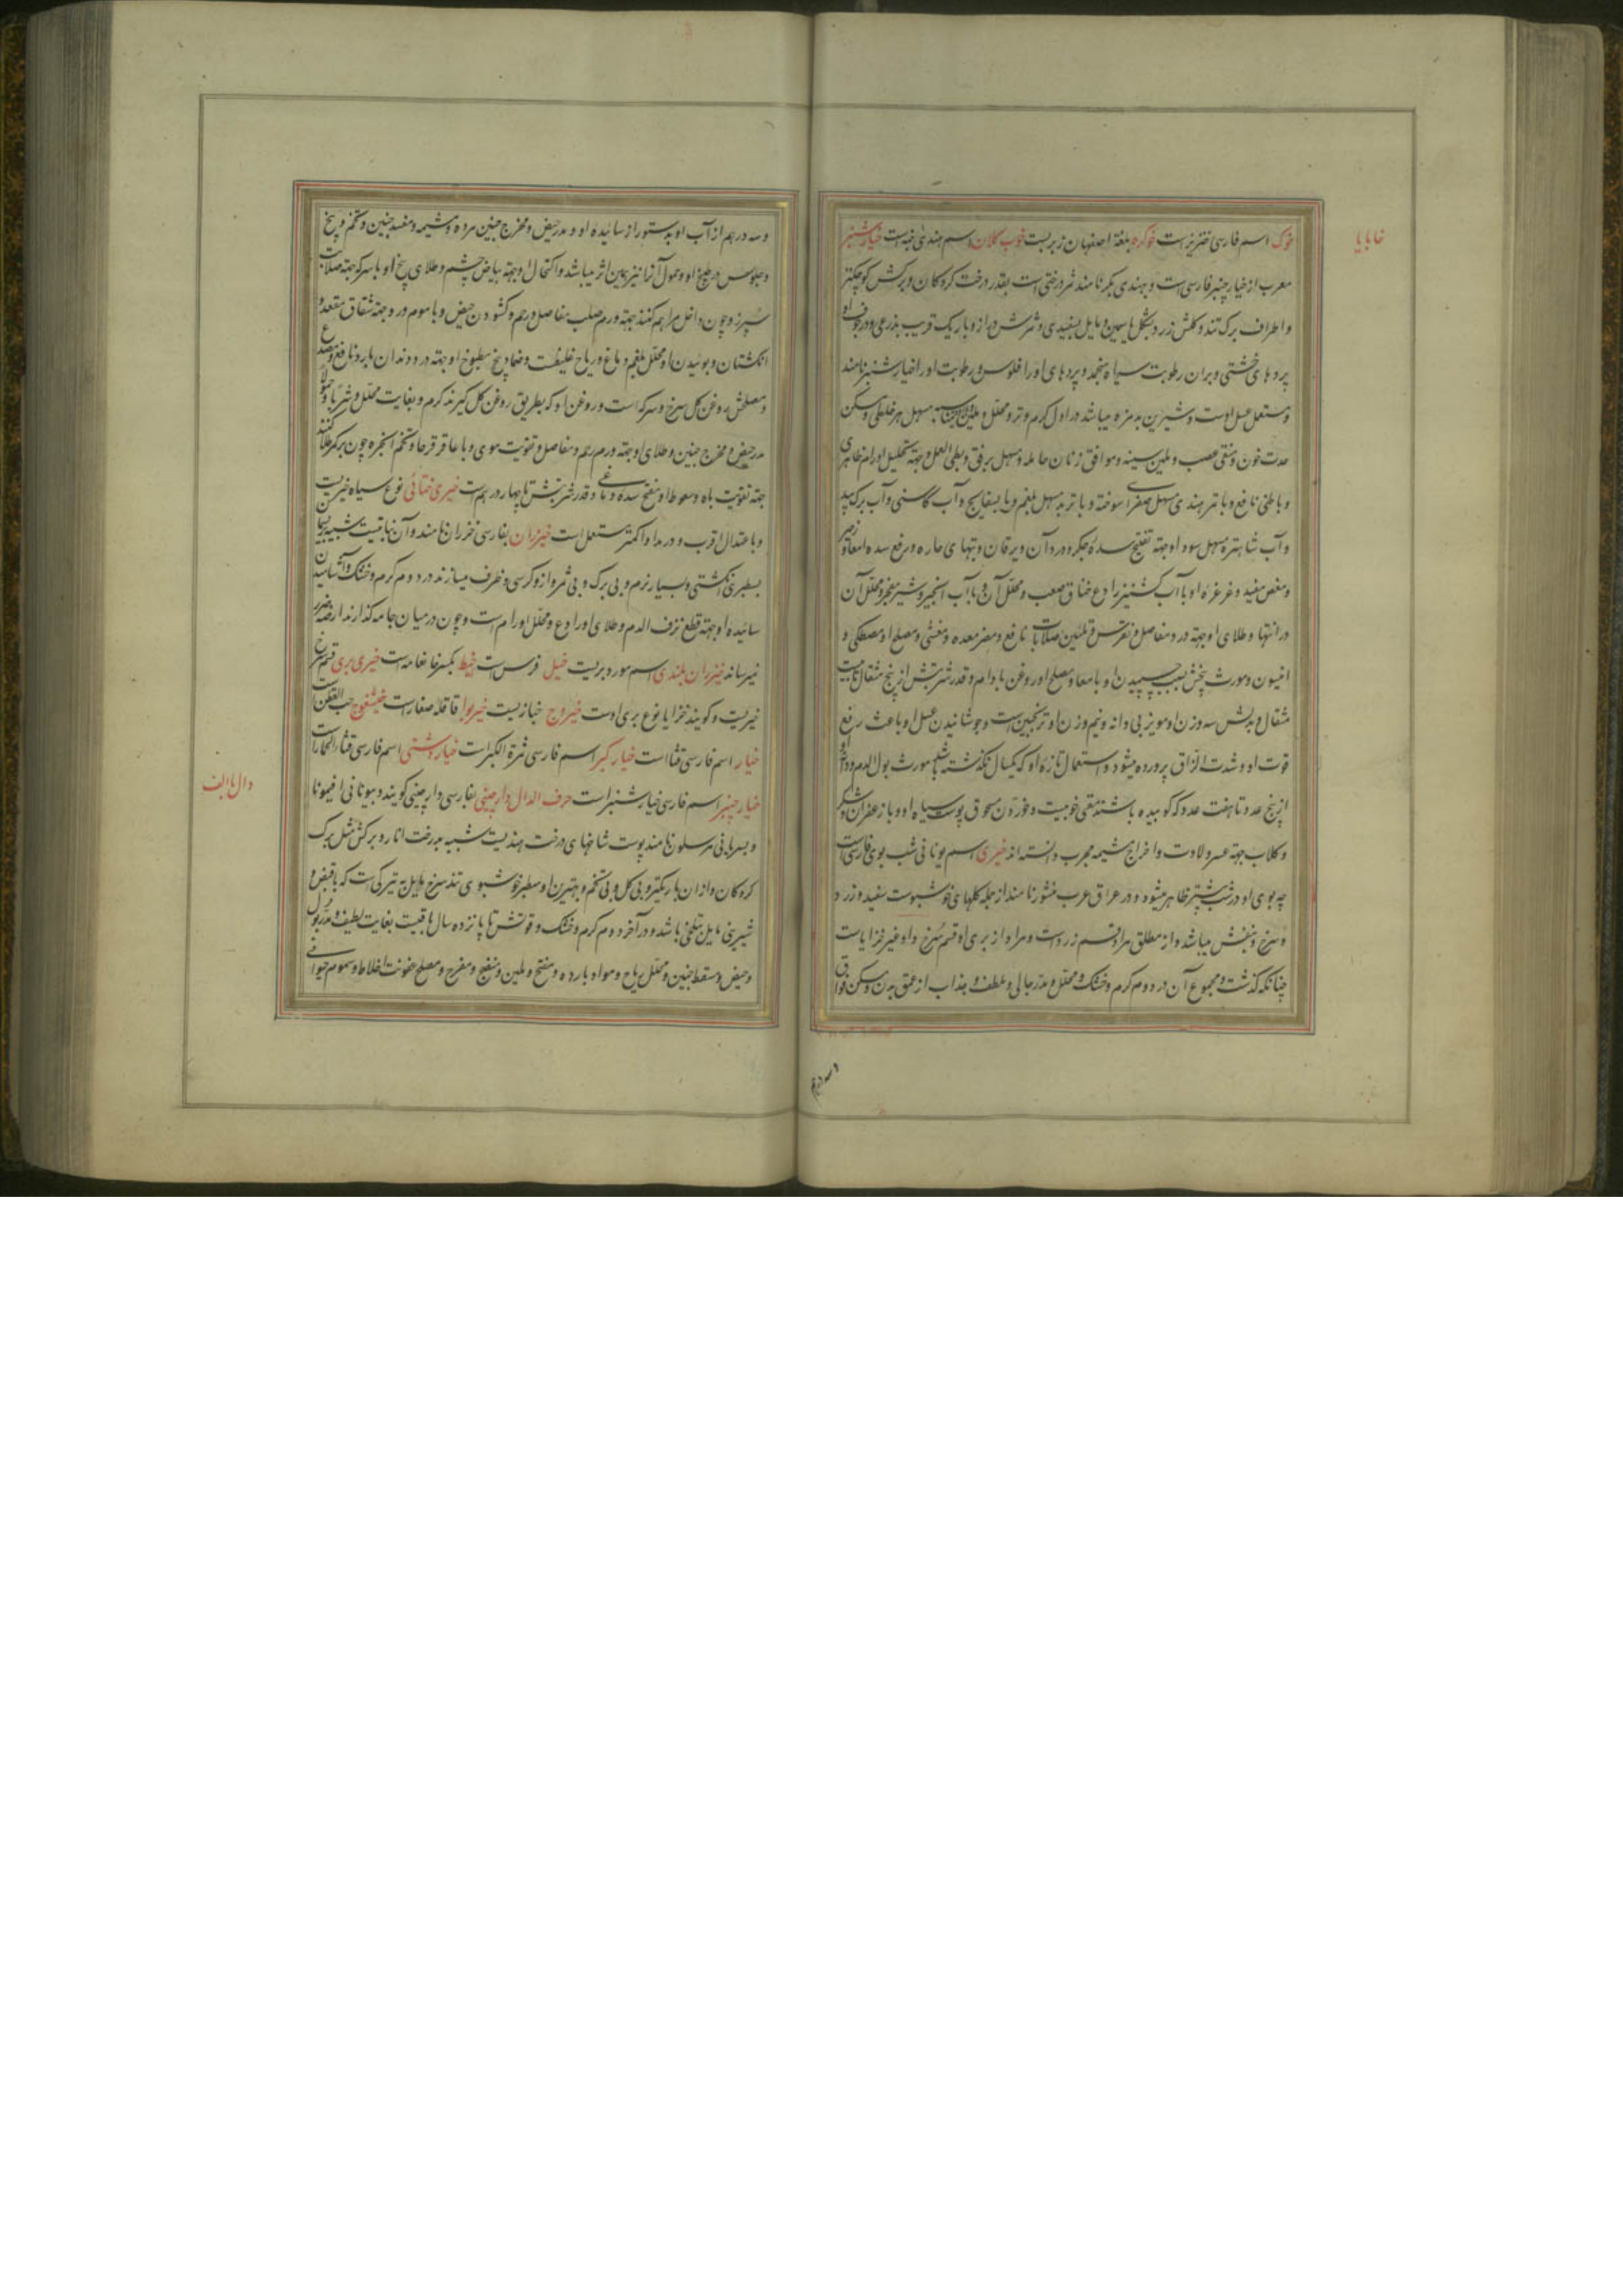 خا با یا
خوک اسم فارسی خنزیرست خوکره بلغة اصفهان زبر بست خوب کلان اسم هندی خبه است خیارشنبر
معرب از خیار چنبر فارسی است و بهندی بکر نامند ثمر درختی است بقدر درخت کردکان و برکش کوچکتر
و اطراف برک تند و کلش زرد بشکل یاسمین و مایل بسفیدی و ثمرش دراز و باریک قریب بذرعی و در جوف او
پردهای خشتی و بران رطوبت سیاه منجمد و پردهای او را فلوس و رطوبت او را خیارشنبر نامند
و مستعمل عسل اوست و شیرین بدمزه میباشد در اول کرم و تر و محلل و ملین و مسهل هر خلطی و مسکن
حدت خون و منقی عصب و ملین سینه و موافق زنان حامله و مسهل برفق و بطی العمل و جهة تحلیل اورام ظاهری
و باطنی نافع و با تمر هندی مسهل صفرای سوخته و با تربد مسهل بلغم و با بسفایج و آب کاسنی و آب برک بید
و آب شاهتره مسهل سودا و جهة تفتیح سده جکر و درد آن و یرقان و تبهای حاره و رفع سده امعا و زحیر
و مغص مفید و غرغره او با آب کشنیز رادع خناق صعب و محلل آن و با آب انجیر و شیر مفجر و محلل آن
در انتها و طلای او جهة درد مفاصل و نقرس و تلیین صلابات نافع و مضر معده و مغثی و مصلح او مصطکی و
انیسون و مورث پیچش بسبب چسپیدن او بامعا و مصلح او روغن بادام و قدر شربتش از پنج مثقال تا بیست
مثقال و بدلش سه وزن او مویز بی دانه و نیم وزن او ترنجبین است و جوشانیدن عسل او باعث رفع
قوت او و شدت الزاق پرورده میشود و استعمال تازه او که یکسال نکذشته باشد مورث بول الدم و دانه او
از پنج عدد تا هفت عدد که کوبیده باشند مقیی خوبیست و خوردن سحوق پوست سیاه او و با زعفران و شکر
و کلاب جهة عسر ولادت و اخراج مشیمه مجرب دانسته اند خیری اسم یونانی شب بوی فارسی است
چه بوی او در شب بیشتر ظاهر میشود و در عراق عرب منثور نامند از جمله کلهای خوشبوست سفید و زرد
و سرخ و بنفش میباشد و از مطلق مراد قسم زردست و مراد از بری او قسم سرخ و او غیر خزایات
چنانکه کذشت و مجموع آن در دوم کرم و خشک و محلل و مدر جالی و ملطف و جذاب از عمق بدن و مسکن فواق
و سه درهم
و سه درهم از آب او بدستور از سائیده او و مدر حیض و مخرج جنین مرده و مشیمه و مفسد جنین و تخم و بیخ
و جلوس در طبیخ او و حمول آن را نیز همین اثر میباشد و اکتحال او جهة بیاض چشم و طلای بیخ او با سرکه جهة صلابت
سپرز و چون داخل مراهم کنند جهة ورم صلب مفاصل و رحم و کشودن حیض و با موم درد و جهة شقاق مقعد و
انکشتان و بوئیدن او محلل بلغم دماغ و ریاح غلیظست و ضماد بیخ مطبوخ او جهة درد دندان بارد نافع و مصدع
و مصلحش روغن کل سرخ و سرکه است و روغن او که بطریق روغن کل کیرند کرم و بغایت محلل و شربا و حمولا
مدر حیض و مخرج جنین و طلای او جهة ورم رحم و مفاصل و تقویت موی و با عاقرقرحا و تخم انجره چون بر کمر طلا کنند
جهة تقویت باه و سعوط او مفتح سده دماغی و قدر شربتش تا چهار درهم است خیری خطائی نوع سیاه خیریست
و با عتدال اقرب و در مداوا کمتر مستعمل است خیزران بفارسی خزران نامند و آن نباتیست شبیه به نی
بسطبری انکشتی و بسیار نرم و بی برک و بی ثمر و ازو کرسی و ظرف میسازند در دوم کرم و خشک و آشامیدن
سائیده او جهة قطع نزف الدم و طلای او رادع و محلل اورام است و چون در میان جامه کذارند ارضه ضرر
نمیرساند خیزران بلدی اسم مورد بریست خیل فرس است خیط بکسر خا نعامه است خیری بری قسم سرخ
خیریست و کویند خزایا نوع بری اوست خیروج خبازیست خیربوا قاقله صغارست خیشفوج حب القطن است
خیار اسم فارسی قثا است خیار کبر اسم فارسی ثمرة الکبرات خیار دشتی اسم فارسی قثاء الحمارات
خیار چنبر اسم فارسی خیار شنبر است حرف الدال دارچینی بفارسی دارچینی کویند و بیونانی افیمونا
دال با الف
و بسریانی مرسلون نامند پوست شاخهای درخت هندیست شبیه بدرخت انار و برکش مثل برک
کردکان و از ان باریکتر و بی کل و بی تخم و بهترین او سطبر خوشبوی تند سرخ مایل به تیرکی است که با قبض و
شیرینی مایل بتلخی باشد و در آخر دوم کرم و خشک و قوتش تا پانزده سال باقیست بغایت لطیف و مدر بول
و حیض و مسقط جنین و محلل ریاح و مواد بارده و مفتح و ملین و منضج و مفرح و مصلح عفونت اخلاط و سموم حیوانی